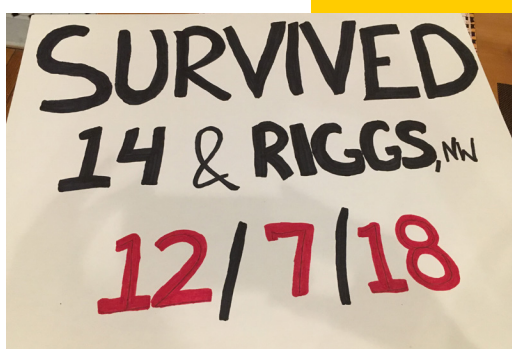 SURVIVED
14 & RIGGS, NW
12/7/18